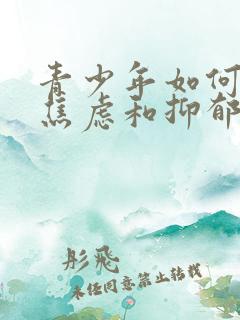 青少年如何
焦虑和抑郁
彤飛
未经同意禁止转载